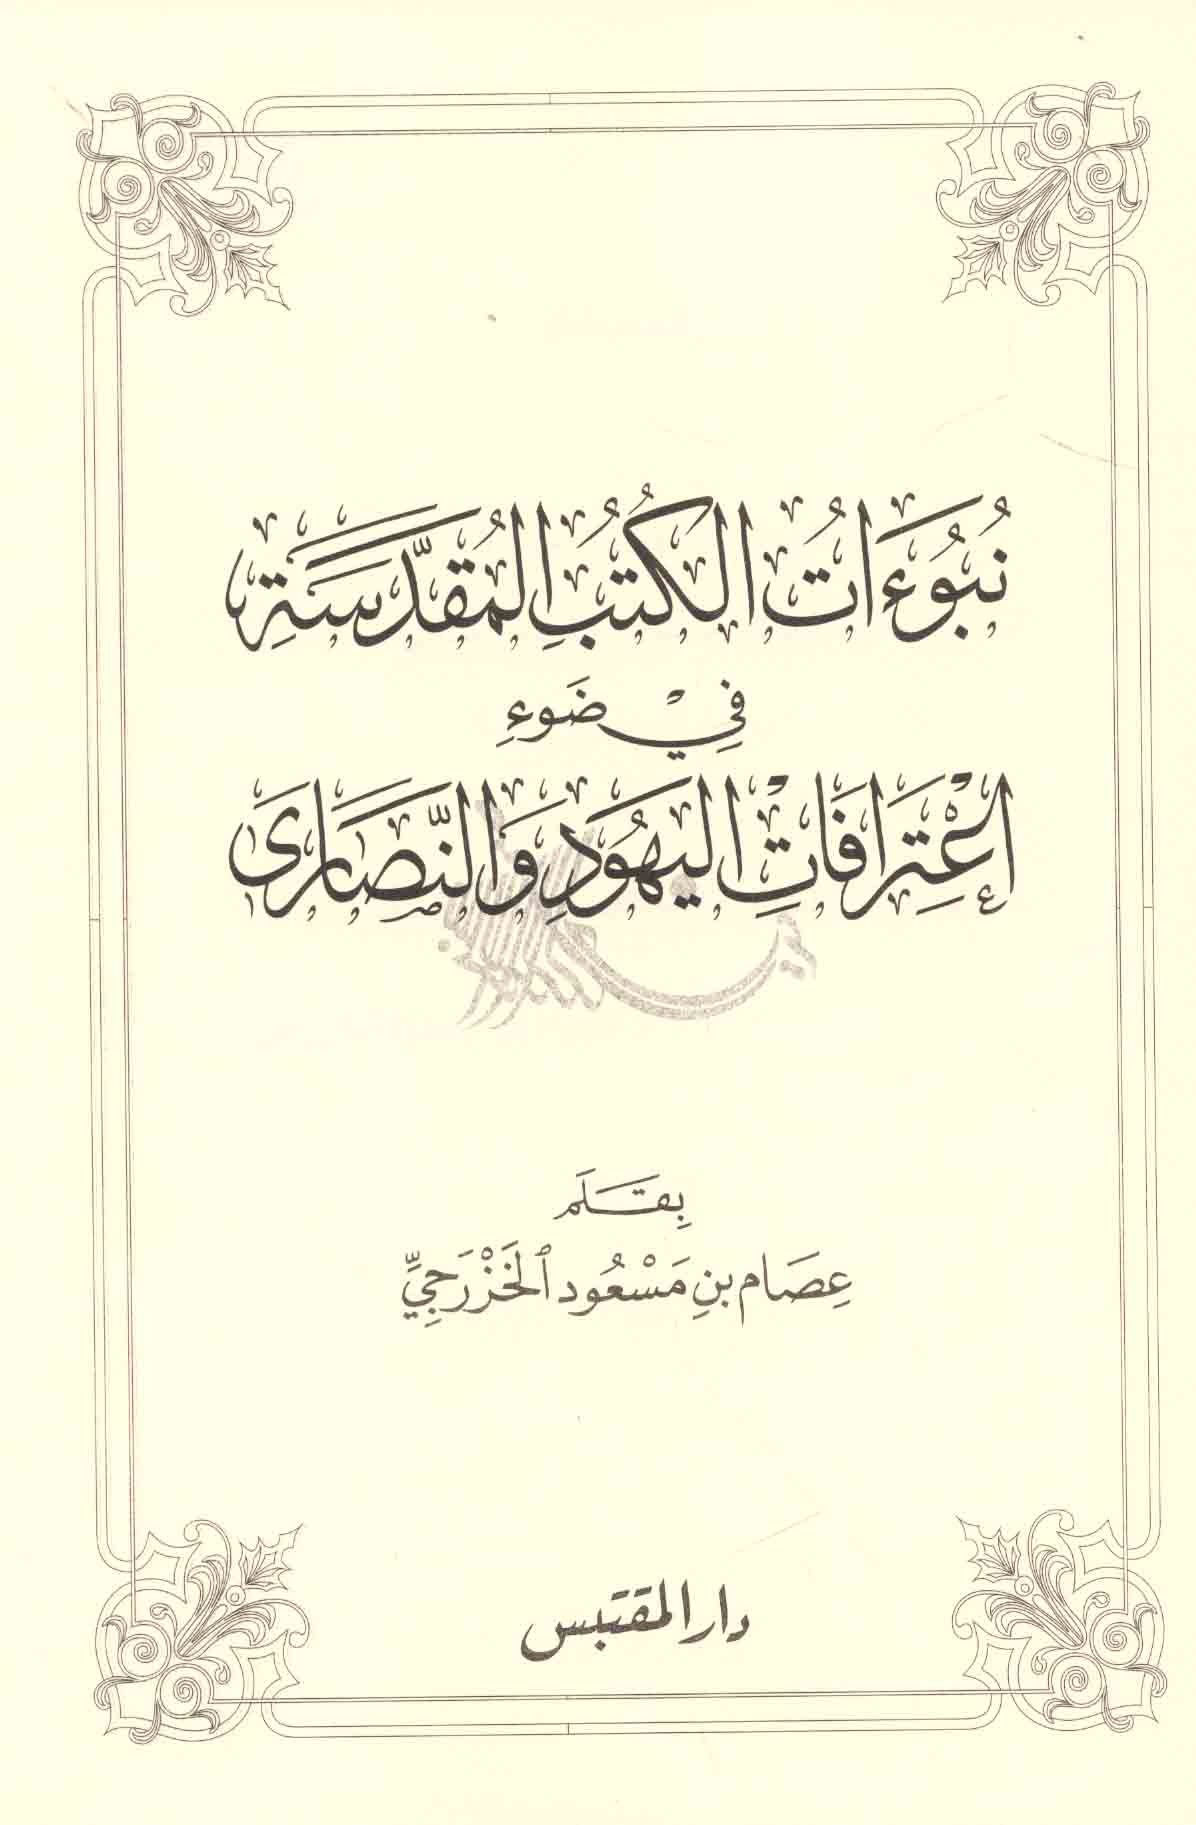 نُبُوءَاتُ الكُتُبِ المُقَدَّسَةِ
فِيْ ضَوءِ
اعْتِرَافَاتِ اليَهُودِ وَالنَّصَارَى
بِقَلَم
عِصَام بنِ مَسْعُود ٱلخَزْرَجِيِّ
دار المقتبس